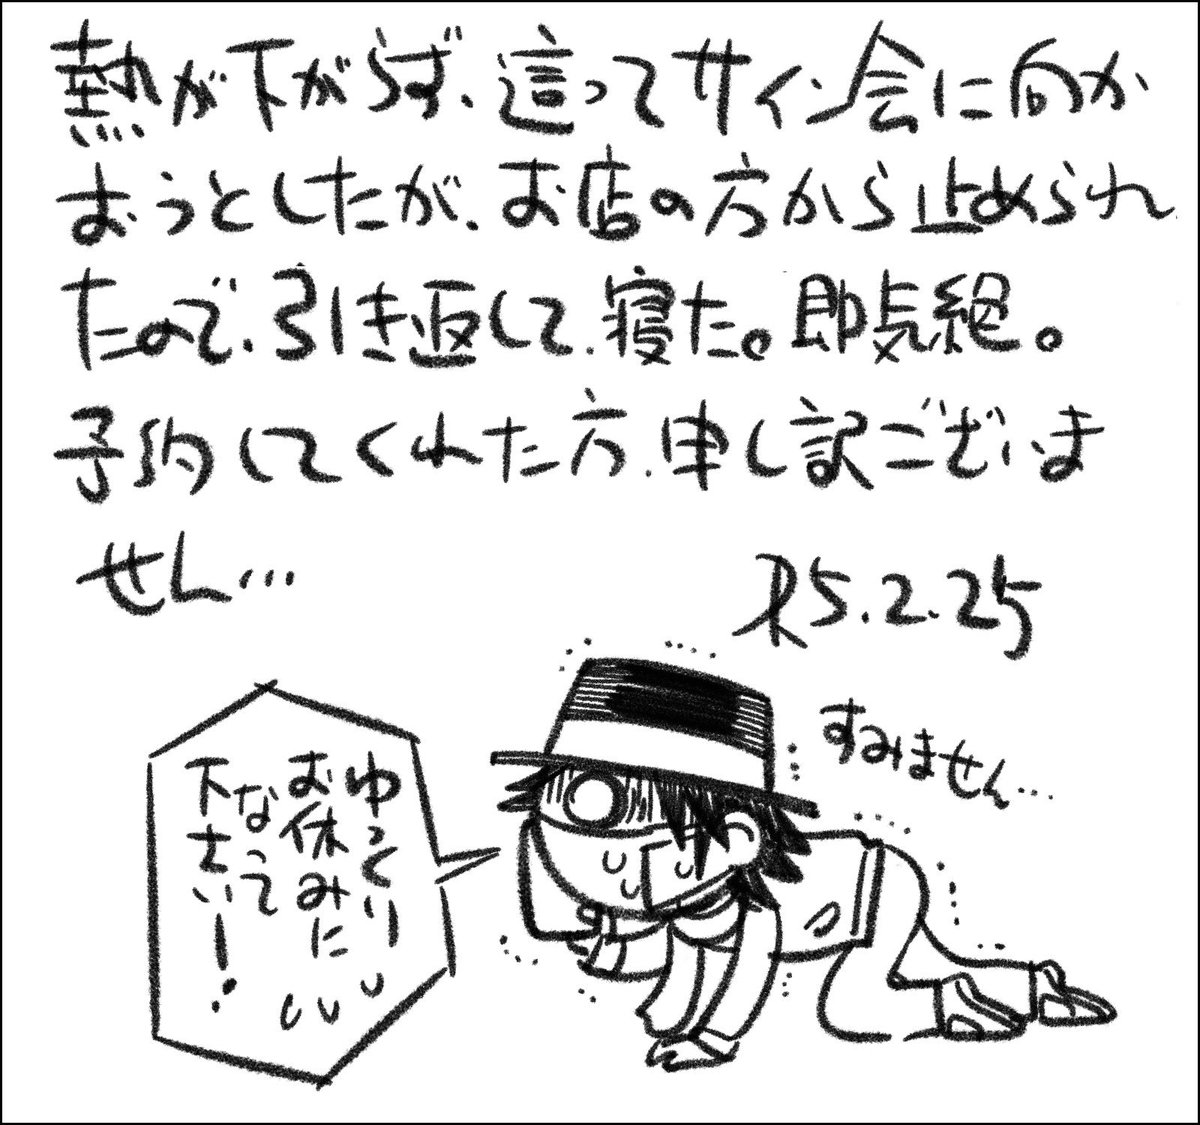 熱が下がらず、這ってサイン会に向か
おうとしたが、お店の方から止められ
たので、引き返して、寝た。即気絶。
予約してくれた方、申し訳ございま
せん…
R5.2.25
すみません…
ゆっくり
お休みに
なって
下さい!